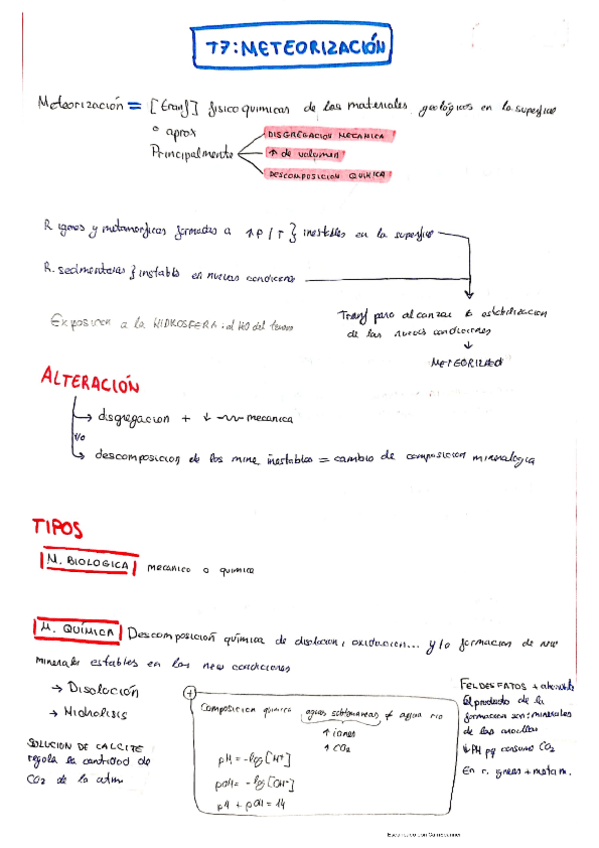 T7: METEORIZACIÓN
Meteorización = [tranf] fisicoquimicas de los materiales geológicos en la superficie
° aprox
Principalmente
DISGREGACION MECANICA
↑ de volumen
DESCOMPOSICION QUIMICA
R igneas y metamorficas formadas a ↑P/T } inestables en la superficie
R. sedimentarias } instables en nuevas condiciones
Exposicion a la HIDROSFERA: al H2O del
Tranf para alcanzar la estabilizacion
de las nuevas condiciones
↓
METEORIZADO
ALTERACIÓN
→ disgregacion + ↓ mecanica
y/o
→ descomposicion de los mine. inestables = cambio de composicion mineralogica
TIPOS
M. BIOLOGICA mecanico o quimico
M. QUÍMICA Descomposicion química de disolucion, oxidacion... y/o formacion de
minerales estables en las new condiciones
→ Disolución
→ Hidrolisis
SOLUCION DE CALCITE
regola la cantidad de
CO2 de la atm
+
Composicion quimica aguas subterraneas ≠ agua rio
↑ iones
↑ CO2
pH = -log[H+]
pOH = -log[OH-]
pH + pOH = 14
FELDESPATOS +
El producto de la
formacion son: minerales
de las arcillas
PH pq consumo CO2
En r. igneas + metam.
Escaneado con CamScanner